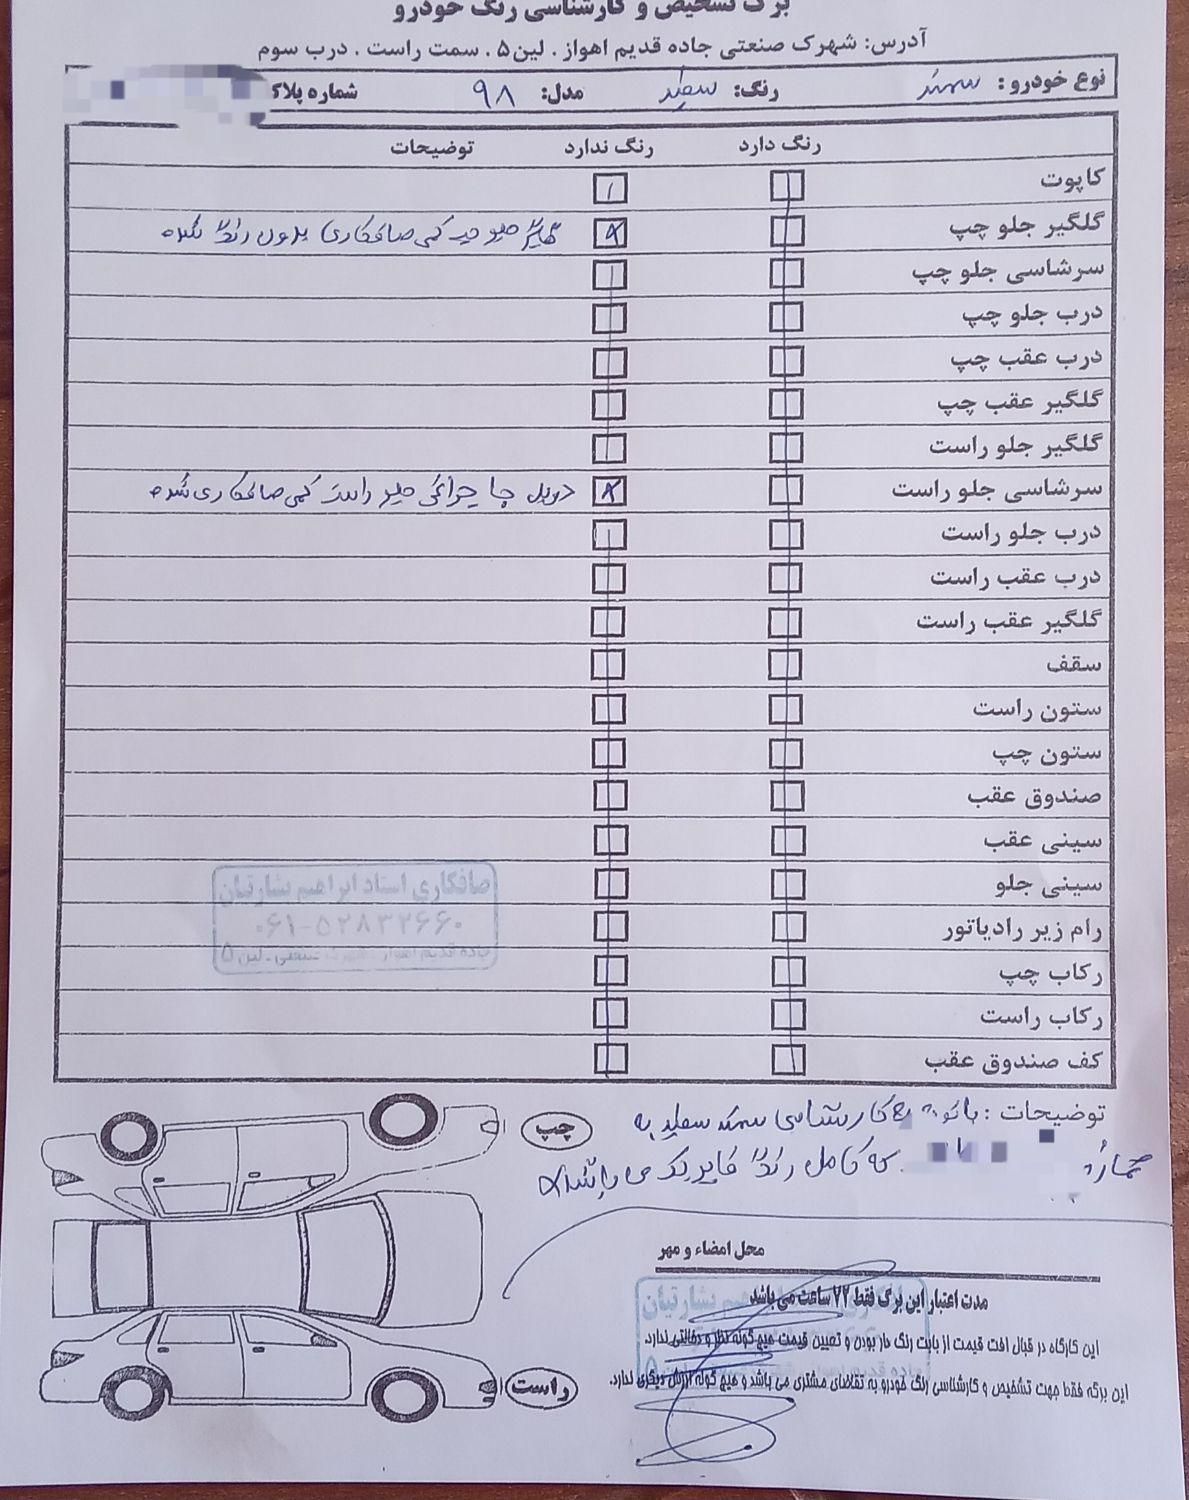 برگ تشخیص و کارشناسی رنگ خودرو
آدرس: شهرک صنعتی جاده قدیم اهواز . لین ۵ . سمت راست . درب سوم
نوع خودرو: سمند رنگ: سفید مدل: ۹۸ شماره پلاک
رنگ دارد رنگ ندارد توضیحات
کاپوت
گلگیر جلو چپ گلگیر جلو چپ کمی صافکاری بدون رنگ شده
سرشاسی جلو چپ
درب جلو چپ
درب عقب چپ
گلگیر عقب چپ
گلگیر جلو راست
سرشاسی جلو راست دوبل جا چراغی جلو راست کمی صافکاری شده
درب جلو راست
درب عقب راست
گلگیر عقب راست
سقف
ستون راست
ستون چپ
صندوق عقب
سینی عقب
سینی جلو
رام زیر رادیاتور
رکاب چپ
رکاب راست
کف صندوق عقب
صافکاری استاد ابراهیم بشارتیان
۰۶۱-۵۲۸۳۲۶۶۰
جاده قدیم اهواز . شهرک صنعتی . لین ۵
توضیحات: کارشناسی سمند سفید به
شماره که کامل رنگ فابریک می باشد
چپ
راست
محل امضاء و مهر
مدت اعتبار این برگ فقط ۷۲ ساعت می باشد
این کارگاه در قبال افت قیمت از بابت رنگ دار بودن و تعیین قیمت هیچ گونه نظر و دخالتی ندارد.
این برگه فقط جهت تشخیص و کارشناسی رنگ خودرو به تقاضای مشتری می باشد و هیچ گونه ارزش دیگری ندارد.